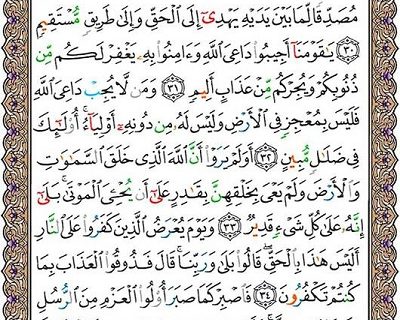 مُصَدِّقًا لِّمَا بَيْنَ يَدَيْهِ يَهْدِىٓ إِلَى ٱلْحَقِّ وَإِلَىٰ طَرِيقٍ مُّسْتَقِيمٍ
٣٠ يَٰقَوْمَنَآ أَجِيبُوا۟ دَاعِىَ ٱللَّهِ وَءَامِنُوا۟ بِهِۦ يَغْفِرْ لَكُم مِّن
ذُنُوبِكُمْ وَيُجِرْكُم مِّنْ عَذَابٍ أَلِيمٍ ٣١ وَمَن لَّا يُجِبْ دَاعِىَ ٱللَّهِ
فَلَيْسَ بِمُعْجِزٍ فِى ٱلْأَرْضِ وَلَيْسَ لَهُۥ مِن دُونِهِۦٓ أَوْلِيَآءُ ۚ أُو۟لَٰٓئِكَ
فِى ضَلَٰلٍ مُّبِينٍ ٣٢ أَوَلَمْ يَرَوْا۟ أَنَّ ٱللَّهَ ٱلَّذِى خَلَقَ ٱلسَّمَٰوَٰتِ
وَٱلْأَرْضَ وَلَمْ يَعْىَ بِخَلْقِهِنَّ بِقَٰدِرٍ عَلَىٰٓ أَن يُحْۦِىَ ٱلْمَوْتَىٰ ۚ بَلَىٰٓ
إِنَّهُۥ عَلَىٰ كُلِّ شَىْءٍ قَدِيرٌ ٣٣ وَيَوْمَ يُعْرَضُ ٱلَّذِينَ كَفَرُوا۟ عَلَى ٱلنَّارِ
أَلَيْسَ هَٰذَا بِٱلْحَقِّ ۖ قَالُوا۟ بَلَىٰ وَرَبِّنَا ۚ قَالَ فَذُوقُوا۟ ٱلْعَذَابَ بِمَا
كُنتُمْ تَكْفُرُونَ ٣٤ فَٱصْبِرْ كَمَا صَبَرَ أُو۟لُوا۟ ٱلْعَزْمِ مِنَ ٱلرُّسُلِ